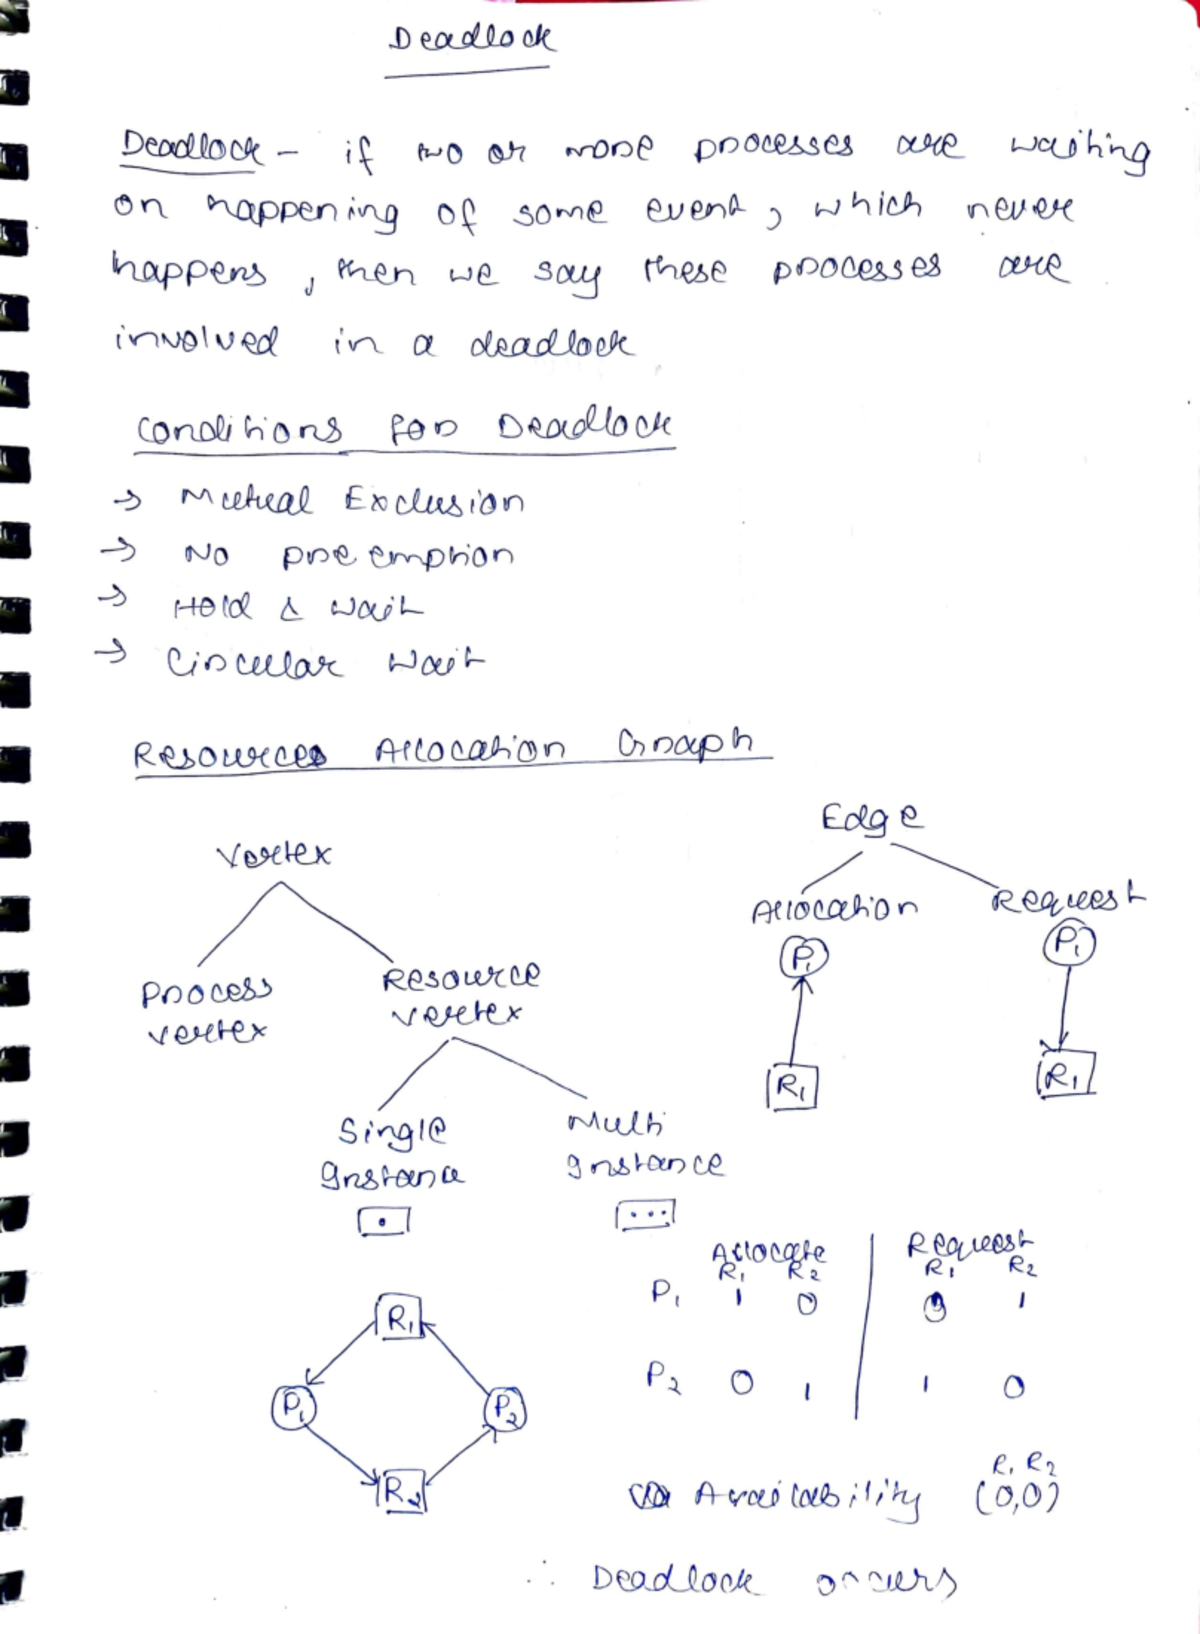 Deadlock
Deadlock - if two or more processes are waiting
on happening of some event, which never
happens, then we say these processes are
involved in a deadlock
Conditions for Deadlock
→ Mutual Exclusion
→ No preemption
→ Hold & wait
→ Circular wait
Resources Allocation Graph
Vertex
Process
vertex
Resource
vertex
Single
Instance
Multi
Instance
Edge
Allocation
P1
R1
Request
P1
R1
R1
P1
P2
R2
Allocate | Request
R1 R2 | R1 R2
P1 1 0 | 0 1
P2 0 1 | 1 0
R1 R2
Availability (0,0)
∴ Deadlock occurs